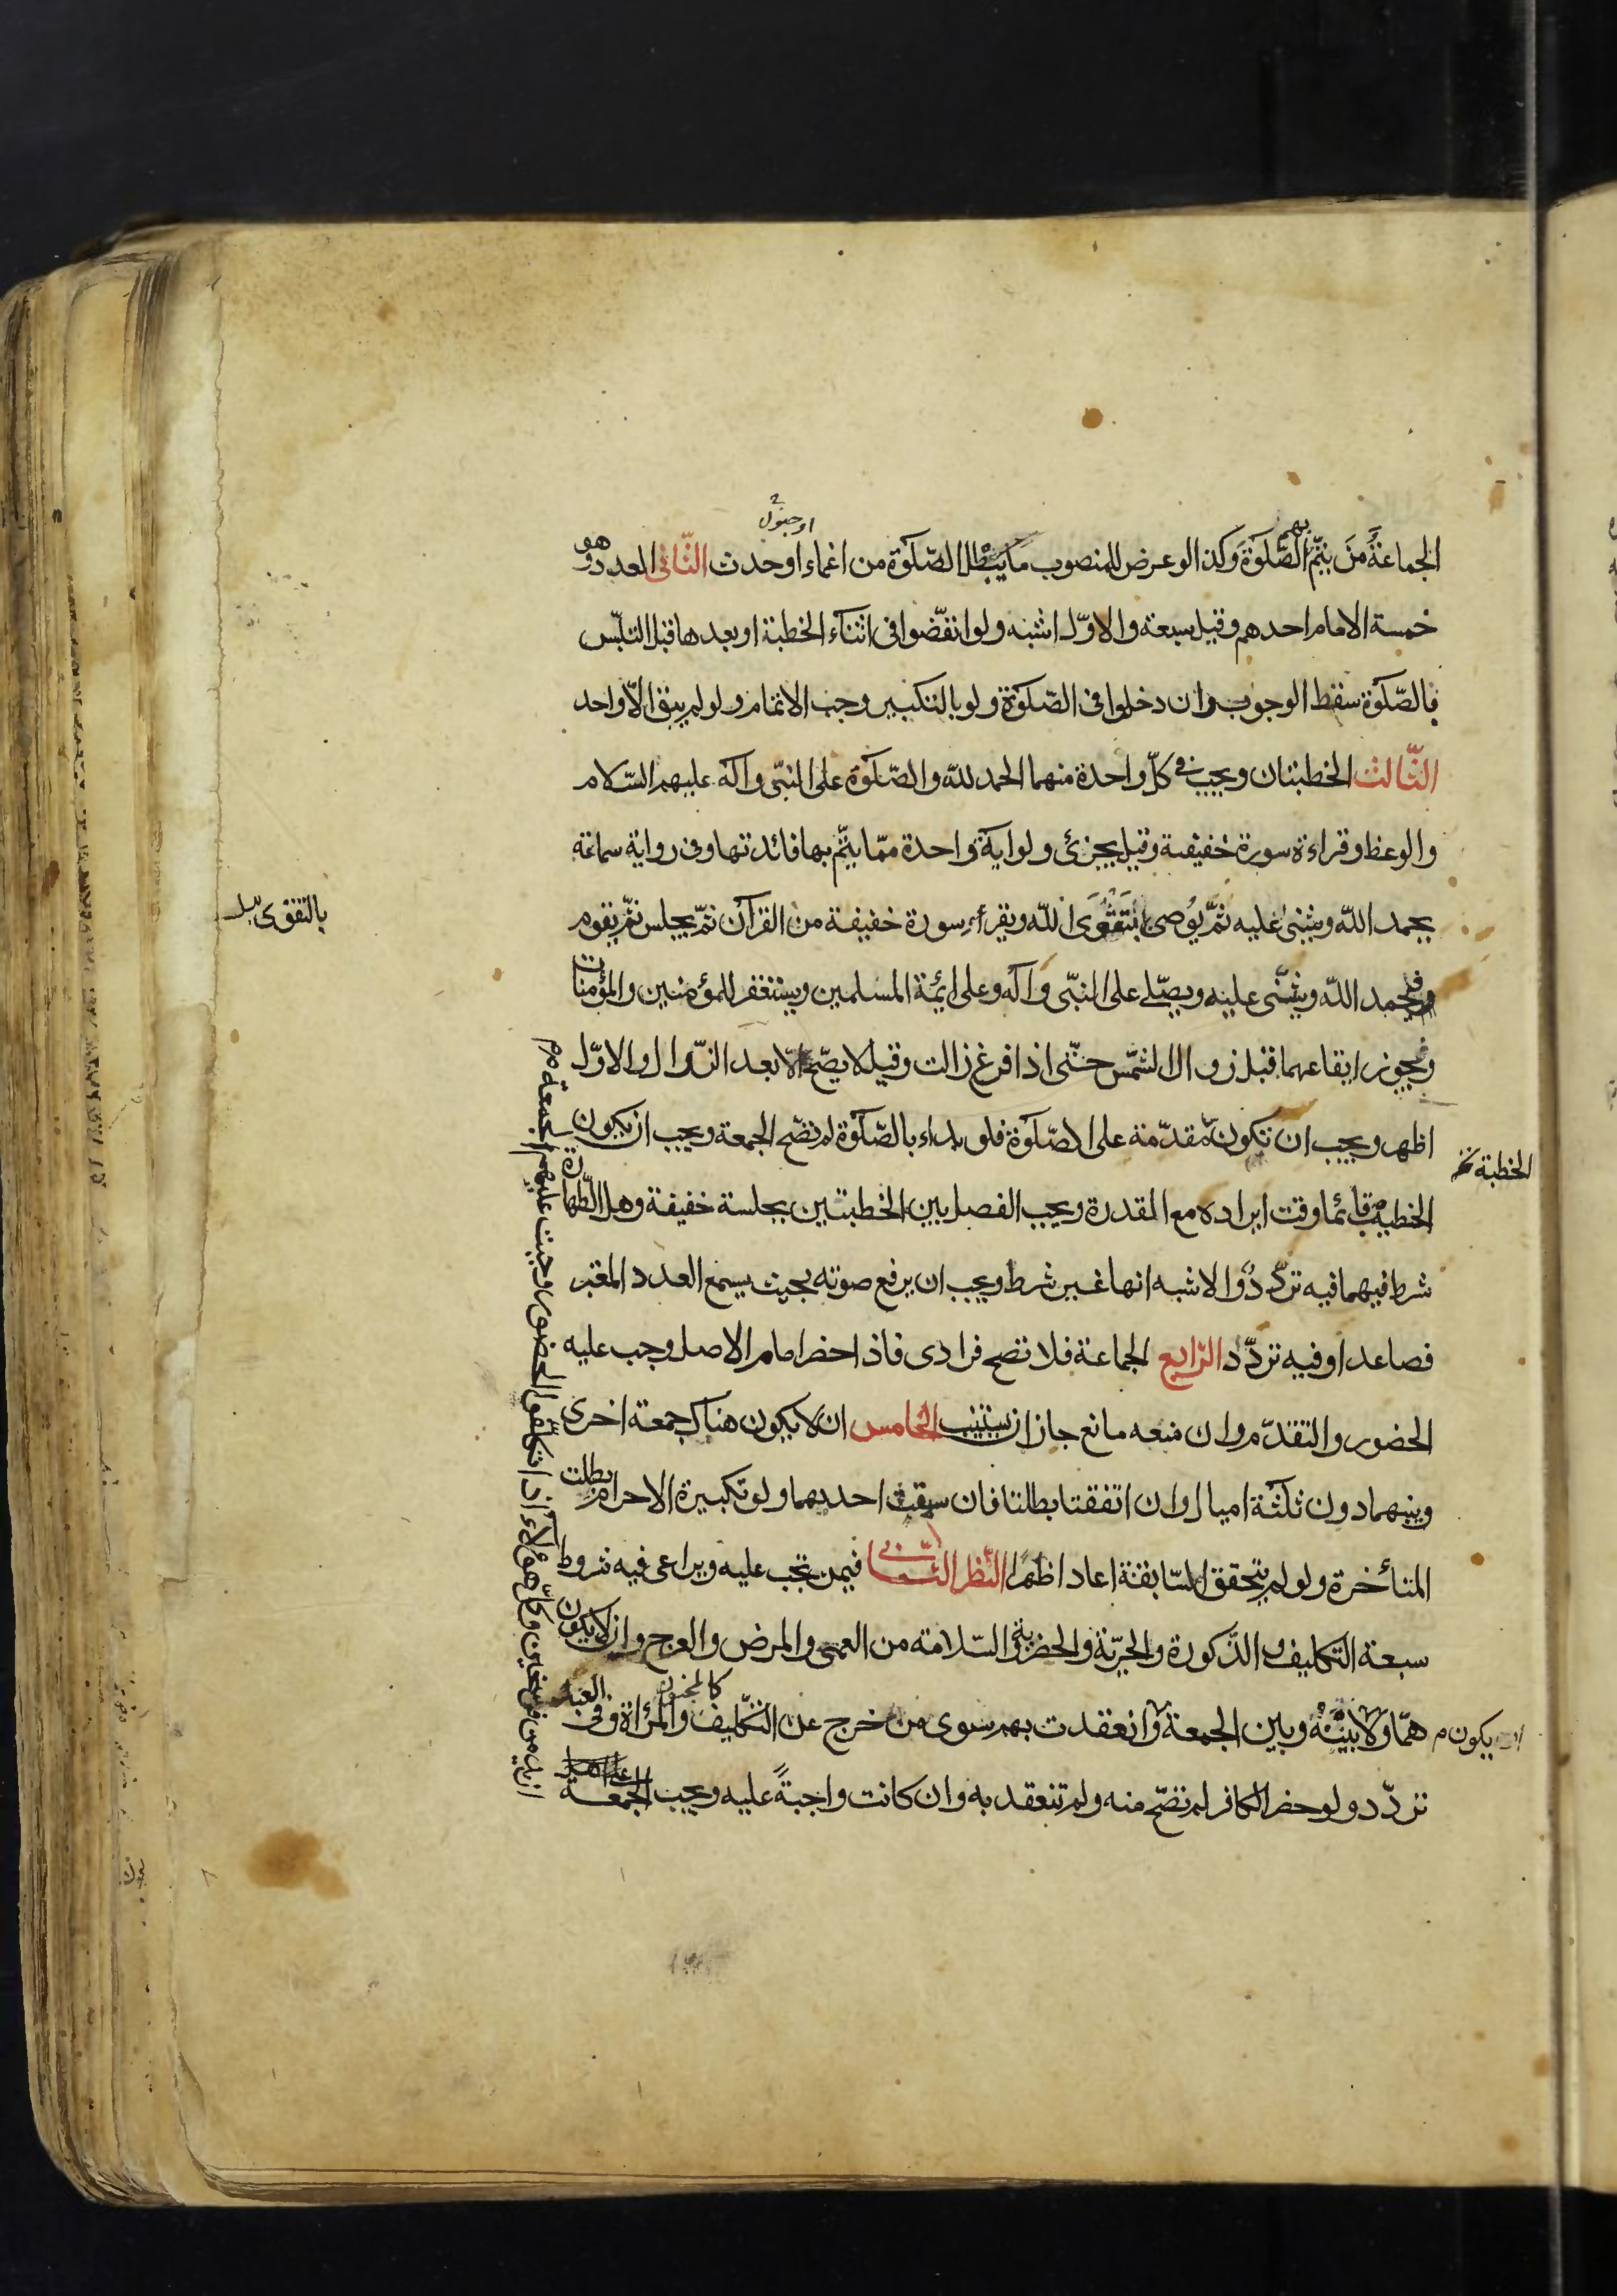 او جنون
الجماعةُ مَنَ يتمّ بهم الصّلوٰة وكذا لو عرض للمنصوب ما يبطل الصّلوٰة من اغماء او حدث الثّانى العدد وهو
خمسة الامام احدهم وقيل سبعة والاوّل اشبه ولو انفضّوا فى اثنآء الخطبة او بعدها قبل التلبّس
بالصّلوٰة سقط الوجوب وان دخلوا فى الصّلوٰة ولو بالتكبير وجب الاتمام ولو لم يبق الّا واحد
الثّالث الخطبتان ويجب فى كلّ واحدة منهما الحمد للّه والصّلوٰة على النبّى وآله عليهم السّلام
والوعظ وقراءة سورة خفيفة وقيل يجزئ ولو اية واحدة ممّا يتّم بها فائدتها وفى رواية سماعة
يحمد اللّه ويثنى عليه ثمّ يوُصى بتَقْوَى اللّه ويقرأ سورة خفيفة من القرآن ثمّ يجلس ثمّ يقوم
بالتقوى
فيحمد اللّه ويثنّى عليه ويصّلے على النبّى وآله وعلى ائمة المسلمين ويستغفر للمؤمنين والمؤمنات
ويجوز ايقاعهما قبل زوال الشمّس حتّى اذا فرغ زالت وقيل لا يصّح الّا بعد الزّوال والاوّل
اظهر ويجب ان تكون مّقدّمة على الصّلوٰة فلو بداء بالصّلوٰة لم تصّح الجمعة ويجب ان يكون
الخطبة
الخطيب قائما وقت ايراده مع القدرة ويجب الفصل بين الخطبتين بجلسة خفيفة وهل الطّهارة
شرط فيهما فيه تردّدٌ والاشبه انها غير شرط ويجب ان يرفع صوته بحيث يسمع العدد المعتبر
فصاعدا وفيه تردّد الرّابع الجماعة فلا تصح فرادى فاذا حضر امام الاصل وجب عليه
الحضور والتقدّم وان منعه مانع جاز ان يستنيب الخامس ان لا يكون هناك جمعة اخرى
وبينهما دون ثلثة اميال وان اتفقتا بطلتا فان سبقت احديهما ولو تكبيرة الاحرام بطلت
المتأخرة ولو لم يتحقق السّابقة اعادا ظهرًا النّظر الثّانى فيمن تجب عليه ويراعى فيه شروط
سبعة التّكليف والذّكورة والحريّة والحضر والسّلامة من العمى والمرض والعرج وان لا يكون
همّا ولا بينه وبين الجمعة وانعقدت بهم سوى من خرج عن التّكليف كالمجنون والمرأة وفى العبد
يكون
تردّد ولو حضر الكافر لم تصّح منه ولم تنعقد به وان كانت واجبةً عليه ويجب الجمعة
ازيد من فرسخين وكلّ هؤلاء اذا تكلّفوا الحضور وجبت عليهم الجمعة